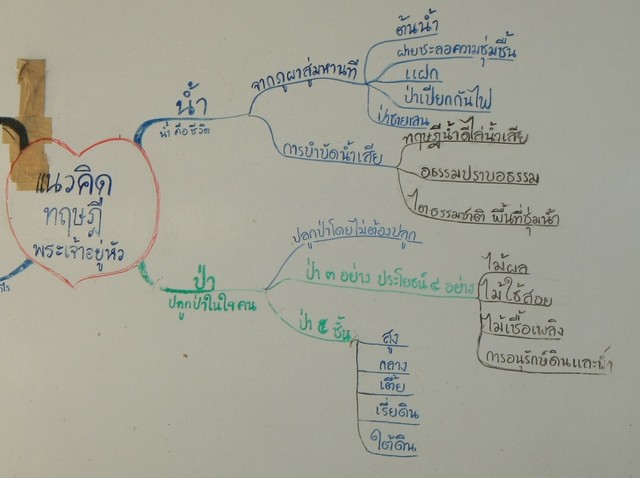 แนวคิด
ทฤษฎี
พระเจ้าอยู่หัว
น้ำ
น้ำ คือชีวิต
จากภูผาสู่มหานที
ต้นน้ำ
ฝายชะลอความชุ่มชื้น
แฝก
ป่าเปียกกันไฟ
ป่าชายเลน
การบำบัดน้ำเสีย
ทฤษฎีน้ำดีไล่น้ำเสีย
อธรรมปราบอธรรม
ไตธรรมชาติ พื้นที่ชุ่มน้ำ
ป่า
ปลูกป่าในใจคน
ปลูกป่าโดยไม่ต้องปลูก
ป่า ๓ อย่าง ประโยชน์ ๔ อย่าง
ไม้ผล
ไม้ใช้สอย
ไม้เชื้อเพลิง
การอนุรักษ์ดินและน้ำ
ป่า ๕ ชั้น
สูง
กลาง
เตี้ย
เรี่ยดิน
ใต้ดิน